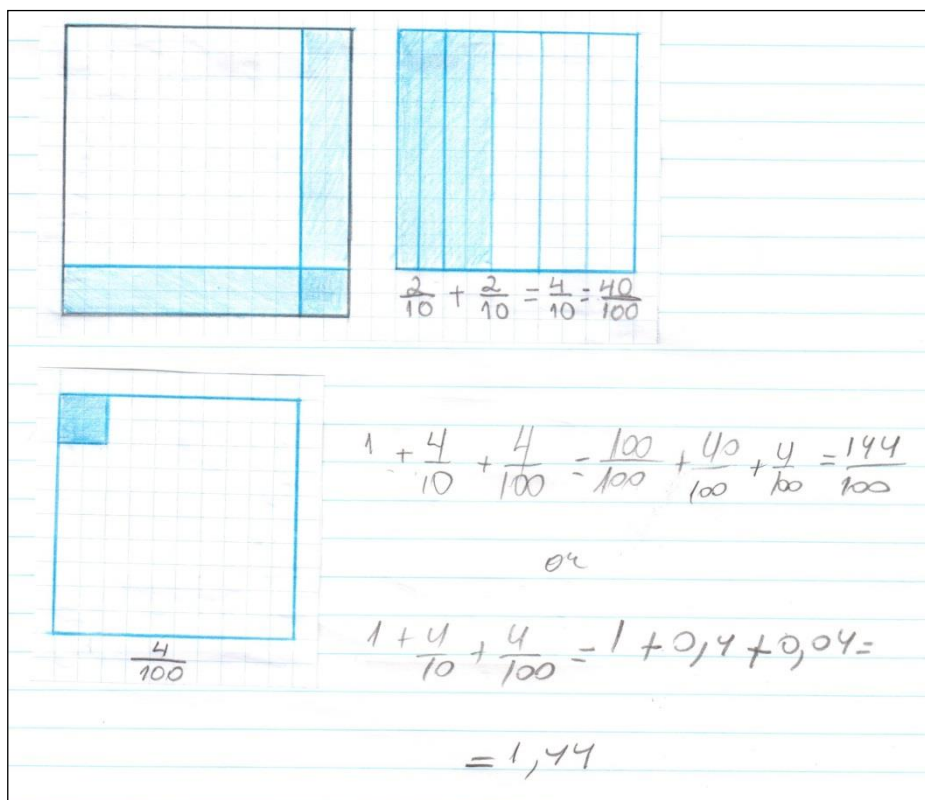 2/10 + 2/10 = 4/10 = 40/100
1 + 4/10 + 4/100 = 100/100 + 40/100 + 4/100 = 144/100
or
4/100
1 + 4/10 + 4/100 = 1 + 0,4 + 0,04 =
= 1,44